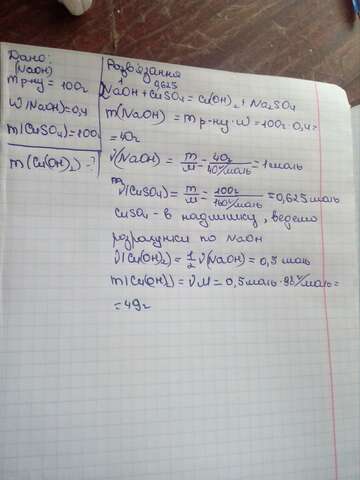 Дано:
(NaOH)
m р-ну = 100г
W(NaOH)=0,4
m(CuSO₄)=100г
m(Cu(OH)₂)-?
Розв'язання
1 0,625
NaOH + CuSO₄ = Cu(OH)₂ + Na₂SO₄
m(NaOH) = m р-ну · w = 100г · 0,4 =
= 40г
ν(NaOH) = m/M = 40г/40г/моль = 1 моль
ν(CuSO₄) = m/M = 100г/160г/моль = 0,625 моль
CuSO₄ - в надлишку, ведемо
розрахунки по NaOH
ν(Cu(OH)₂) = 1/2 ν(NaOH) = 0,5 моль
m(Cu(OH)₂) = ν·M = 0,5 моль · 98 г/моль =
= 49г